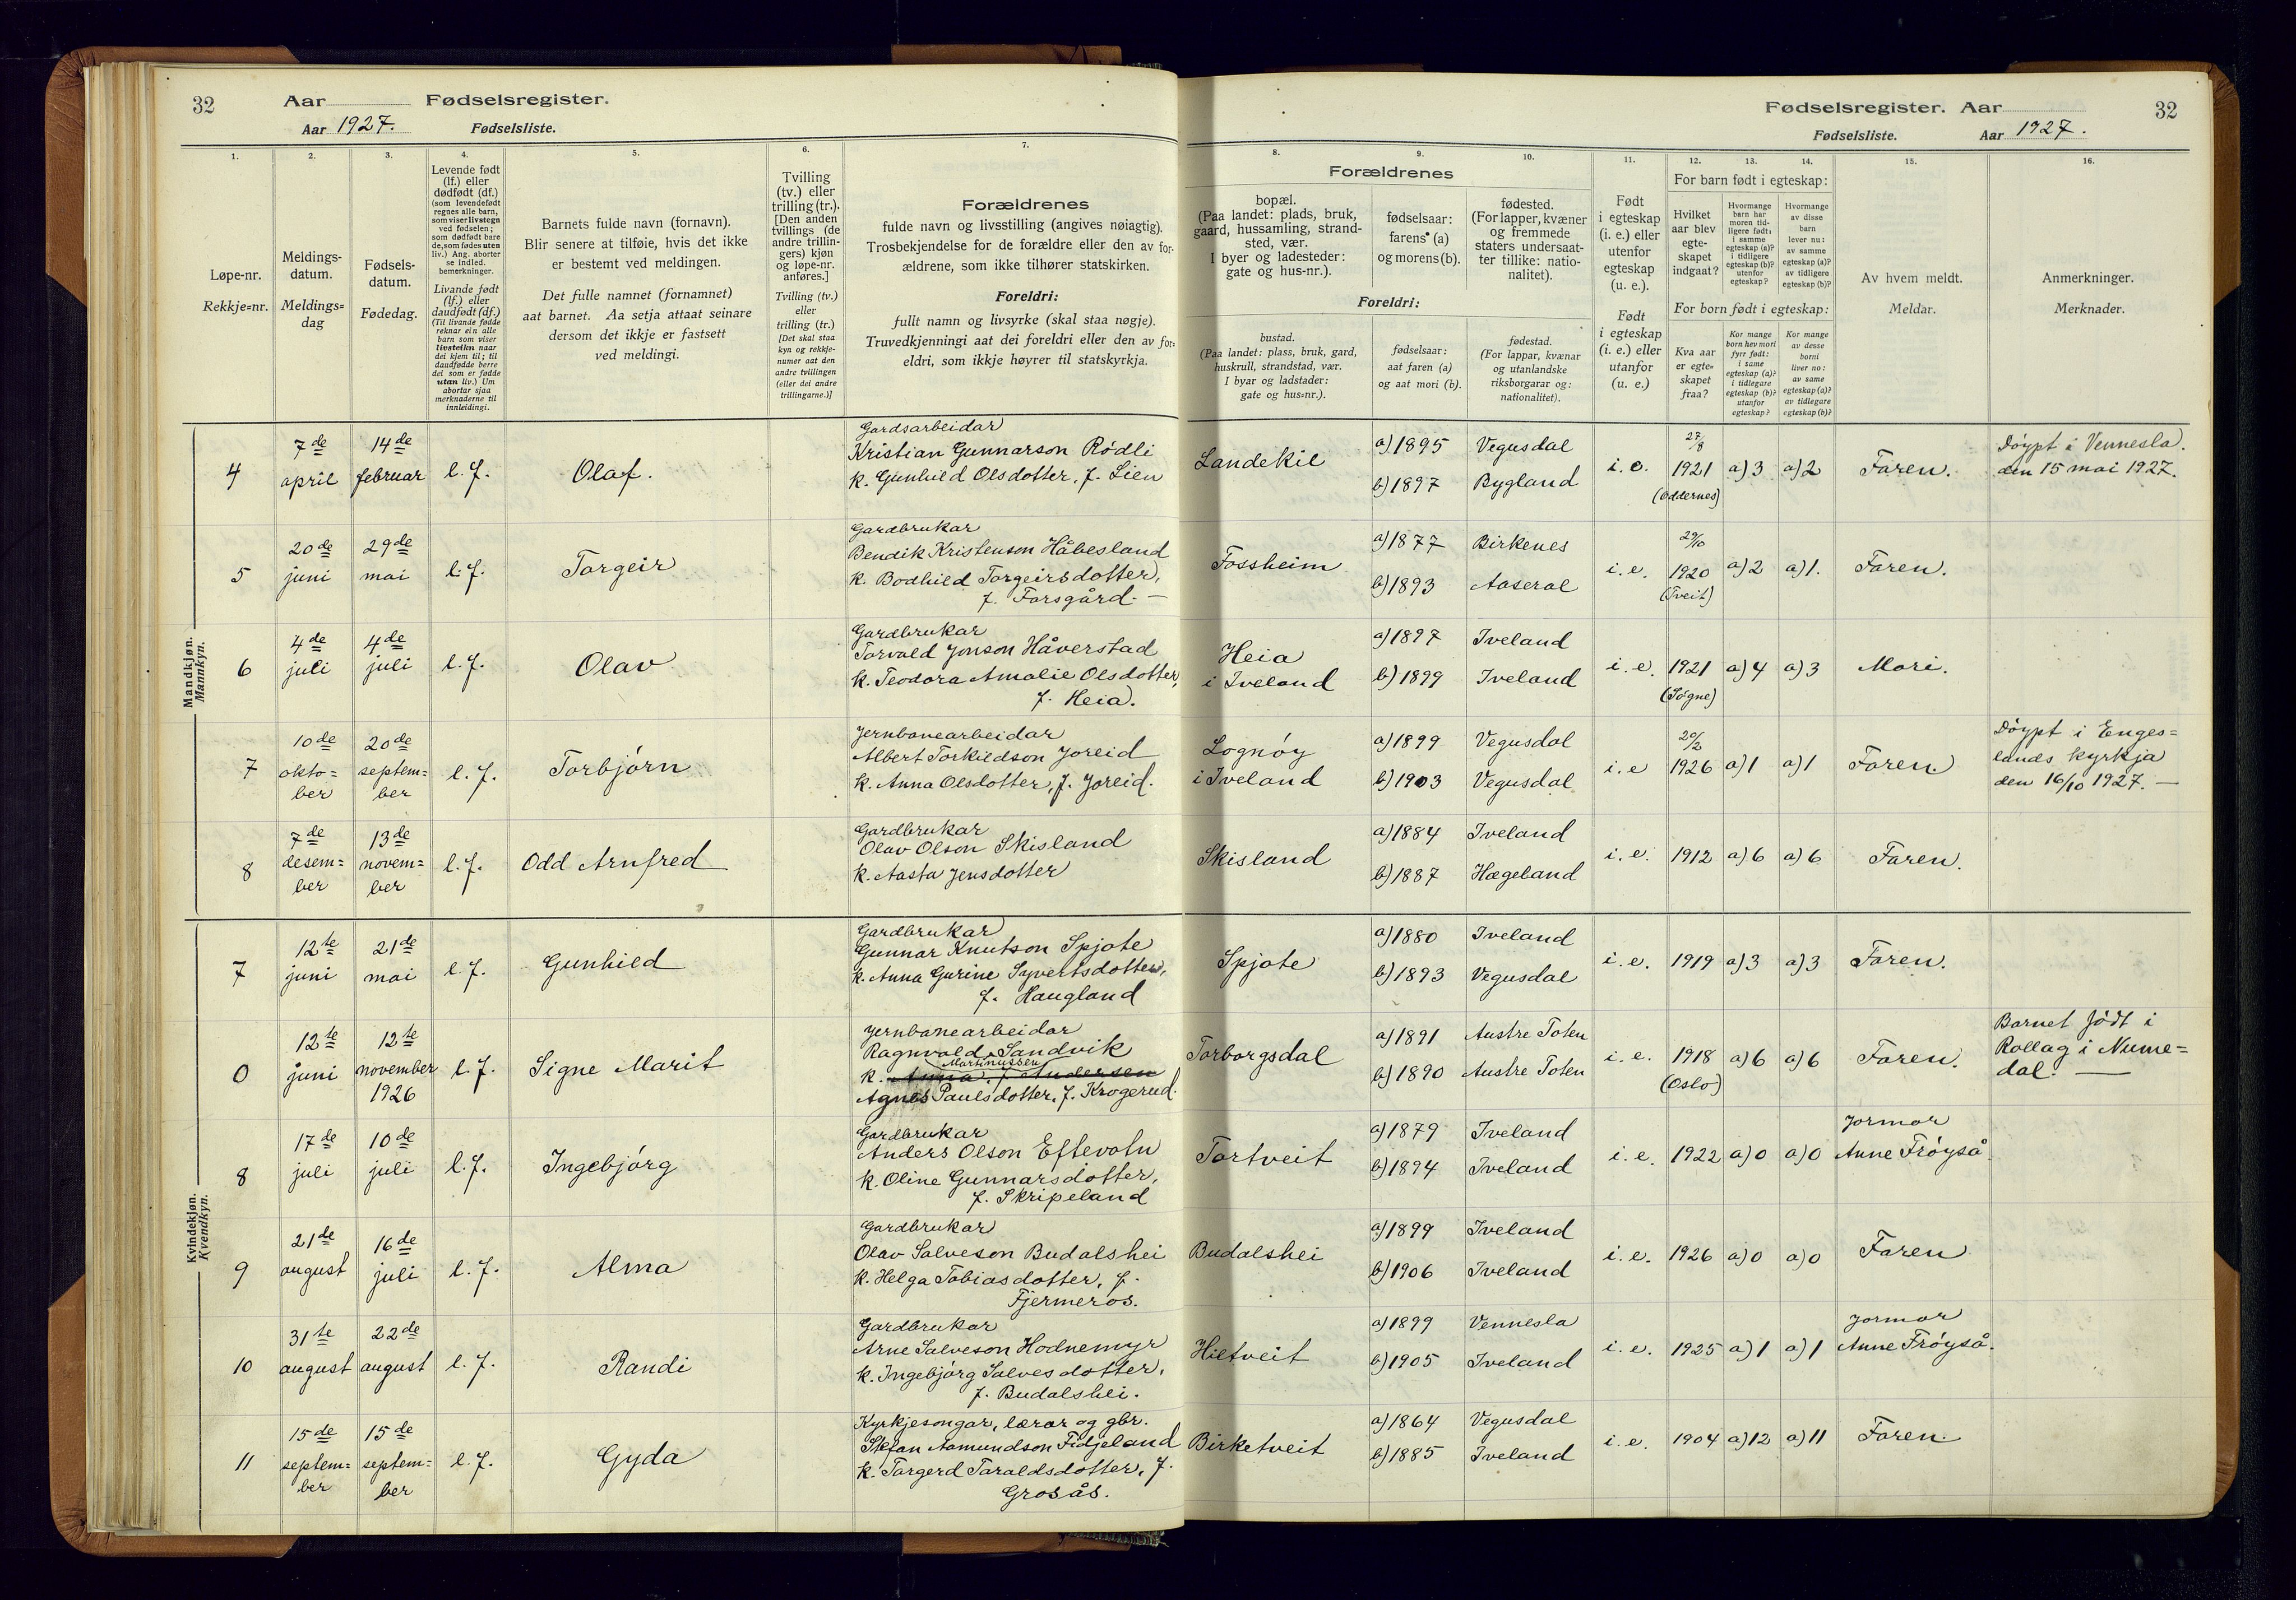 32 Aar Fødselsregister.
Aar 1927. Fødselsliste.
Fødselsregister. Aar 32
Fødselsliste. Aar 1927.
1.
Løpe-nr.
Rekkje=nr.
2.
Meldings-
datum.
Meldings=
dag
3.
Fødsels-
datum.
Fødedag.
4.
Levende født
(lf.) eller
dødfødt (df.)
(som levendefødt
regnes alle barn,
som viser livstegn
ved fødselen;
som dødfødt bare
de, som fødes uten
liv.) Ang. aborter
se indled.
bemerkninger.
Livande født
(lf.) eller
daudfødt (df.)
(Til livande fødde
reknar ein alle
barn som viser
livsteikn naar
dei kjem til; til
daudfødde berre
dei som er fødde
utan liv.) Um
abortar sjaa
merknaderne til
innleidingi.
5.
Barnets fulde navn (fornavn).
Blir senere at tilføie, hvis det ikke
er bestemt ved meldingen.
Det fulle namnet (fornamnet)
aat barnet. Aa setja attaat seinare
dersom det ikkje er fastsett
ved meldingi.
6.
Tvilling
(tv.) eller
trilling (tr.).
[Den anden
tvillings (de
andre trillin-
gers) kjøn
og løpe-nr.
anføres.]
Tvilling (tv.)
eller
trilling (tr.)
[Det skal staa
kyn og rekkje-
numer aat den
andre tvillingen
(eller dei andre
trillingarne.)]
7.
Forældrenes
fulde navn og livsstilling (angives nøiagtig).
Trosbekjendelse for de forældre eller den av for-
ældrene, som ikke tilhører statskirken.
Foreldri:
fullt namn og livsyrke (skal staa nøgje).
Truvedkjenningi aat dei foreldri eller den av for-
eldri, som ikkje høyrer til statskyrkja.
Forældrenes
8.
bopæl.
(Paa landet: plads, bruk,
gaard, hussamling, strand-
sted, vær.
I byer og ladesteder:
gate og hus-nr.).
9.
fødselsaar:
farens (a)
og morens (b).
10.
fødested.
(For lapper, kvæner
og fremmede
staters undersaat-
ter tillike: natio-
nalitet).
Foreldri:
bustad.
(Paa landet: plass, bruk, gard,
huskrull, strandstad, vær.
I byar og ladstader:
gate og hus=nr.).
fødselsaar:
aat faren (a)
og aat mori (b).
fødestad.
(For lappar, kvænar
og utanlandske
riksborgarar og:
nationalitet).
11.
Født
i egteskap
(i. e.) eller
utenfor
egteskap
(u. e.).
Født
i egteskap
(i. e.) eller
utanfor
(u. e.)
For barn født i egteskap:
12.
Hvilket
aar blev
egte-
skapet
indgaat?
13.
Hvormange
barn har
moren tid-
ligere født:
i samme
egteskap (a)?
i tidligere
egteskap (b)?
utenfor
egteskap?
14.
Hvormange
av disse
barn
lever nu:
av samme
egteskap (a)?
av tidligere
egteskap (b)?
For born født i egteskap:
Kva aar
er egte=
skapet
fraa?
Kor mange
born hev mori
fyrr født:
i same
egteskap (a)?
i tidlegare
egteskap (b)?
utanfor
egteskap?
Kor mange
av desse
borni
liver no:
av same
egteskap (a)?
av tidlegare
egteskap (b)?
15.
Av hvem meldt.
Meldar.
16.
Anmerkninger.
Merknader.
Mandkjøn.
Mannkyn.
4 7de april 14de februar l. f. Olaf.
Gardsarbeidar
Kristian Gunnarson Rødli
k. Gunhild Olsdotter, f. Lien
Landekil a) 1895 Vegusdal
b) 1897 Bygland
i. e. 27/8 1921 (Oddernes) a) 3 a) 2 Faren.
Døypt i Vennesla.
den 15 mai 1927.
5 20de juni 29de mai l. f. Torgeir
Gardbrukar
Bendik Kristenson Håbesland
k. Bodhild Torgeirsdotter,
f. Farsgård. —
Fossheim a) 1877 Birkenes
b) 1893 Aaseral
i. e. 29/10 1920 (Tveit) a) 2 a) 1. Faren.
6 4de juli 4de juli l. f. Olav
Gardbrukar
Torvald Jonson Håverstad
k. Teodora Amalie Olsdotter,
f. Heia.
Heia
i Iveland
a) 1897 Iveland
b) 1899 Iveland
i. e. 1921 (Søgne) a) 4 a) 3 Mori.
7 10de okto=ber 20de septem=ber l. f. Torbjørn
Jernbanearbeidar
Albert Torkildson Joreid
k. Anna Olsdotter, f. Joreid.
Lognøy
i Iveland
a) 1899 Vegusdal
b) 1903 Vegusdal
i. e 20/2 1926 a) 1 a) 1 Faren.
Døypt i Enges=
lands kyrkja
den 16/10 1927. —
8 7de desem=ber 13de novem=ber l. f. Odd Arnfred
Gardbrukar
Olav Olson Skisland
k. Aasta Jensdotter
Skisland a) 1884 Iveland
b) 1887 Hægeland
i. e. 1912 a) 6 a) 6 Faren.
Kvindekjøn.
Kvendkyn.
7 12te juni 21de mai l. f. Gunhild
Gardbrukar
Gunnar Knutson Spjote
k. Anna Gurine Syvertsdotter,
f. Haugland
Spjote a) 1880 Iveland
b) 1893 Vegusdal
i. e. 1919 a) 3 a) 3 Faren.
0 12te juni 12te november 1926 l. f. Signe Marit
Jernbanearbeidar
Ragnvald Sandvik
Martinussen
k. Anna, f. Andersen
Agnes Paulsdotter, f. Krogerud.
Torborgsdal a) 1891 Austre Toten
b) 1890 Austre Toten
i. e. 1918 (Oslo) a) 6 a) 6 Faren.
Barnet født i
Rollag i Nume=
dal. —
8 17de juli 10de juli l. f. Ingebjørg
Gardbrukar
Anders Olson Eftevatn
k. Oline Gunnarsdotter,
f. Skripeland
Tortveit a) 1879 Iveland
b) 1894 Iveland
i. e. 1922 a) 0 a) 0 Jormor
Anne Frøyså.
9 21de august 16de juli l. f. Alma
Gardbrukar
Olav Salveson Budalshei
k. Helga Tobiasdotter, f.
Fjermeros.
Budalshei a) 1899 Iveland
b) 1906 Iveland
i. e. 1926 a) 0 a) 0 Faren
10 31te august 22de august l. f. Randi
Gardbrukar
Arne Salveson Hodnemyr
k. Ingebjørg Salvesdotter,
f. Budalshei.
Hiltveit a) 1899 Vennesla
b) 1905 Iveland
i. e. 1925 a) 1 a) 1 Jormor
Anne Frøyså.
11 15de septem=ber 15de septem=ber l. f. Gyda
Kyrkjesongar, lærar og gbr.
Stefan Aamundson Fidjeland
k. Torgerd Taraldsdotter, f.
Grosås.
Birketveit a) 1864 Vegusdal
b) 1885 Iveland
i. e. 1904 a) 12 a) 11 Faren